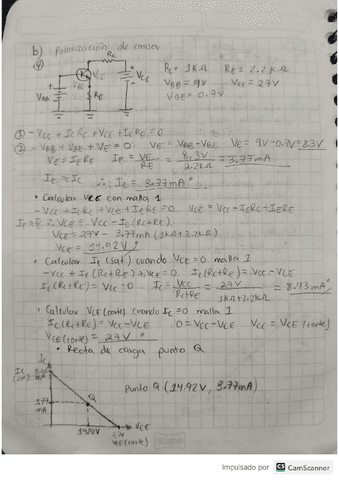 b) Polarización de emisor
④ Rc
VCE VCC
VBE
VBB RE
Rc = 1KΩ RE = 2.2KΩ
VBB = 9V Vcc = 27V
VBE = 0.7V
① -Vcc + IcRc + VCE + IERE = 0
② -VBB + VBE + VE = 0 VE = VBB - VBE VE = 9V - 0.7V = 8.3V
VE = IERE IE = VE/RE = 8.3V/2.2KΩ = 3.77mA
IE ≈ Ic ∴ Ic = 3.77mA
• Calcular VCE con malla 1
-Vcc + IcRc + VCE + IERE = 0 VCE = Vcc - IcRc - IERE
∴ VCE = Vcc - Ic(Rc+RE).
VCE = 27V - 3.77mA (1KΩ + 2.2KΩ)
VCE = 14.92V
• Calcular Ic (sat) cuando VCE = 0 malla 1
-Vcc + Ic(Rc+RE) + VCE = 0 Ic(Rc+RE) = Vcc - VCE
Ic(Rc+RE) = Vcc - 0 Ic = Vcc/Rc+RE = 27V/1KΩ+2.2KΩ = 8.43mA
• Calcular VCE (corte) cuando Ic = 0 malla 1
Ic(Rc+RE) = Vcc - VCE 0 = Vcc - VCE Vcc = VCE (corte)
VCE (corte) = 27V
• Recta de carga punto Q
Ic
Ic (sat) 8.43 mA
Q
Punto Q (14.92V, 3.77mA)
3.77 mA
VCE
14.92V
VCE (corte)
Scribe
Impulsado por CS CamScanner